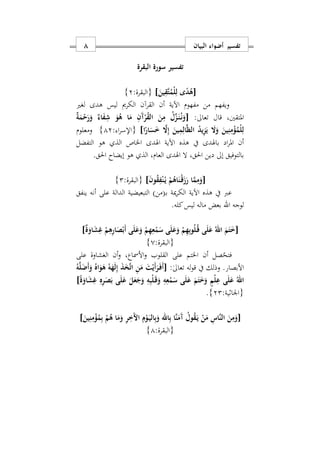 تفسير أضواء البيان
٨
تفسير سورة البقرة
[هُدًى لِّلْمُتَّقِينَ] {البقرة:٢}
ويفهم من مفهوم الآية أن القرآن الكريم ليس هدى لغير
المتقين، قال تعالى: [وَنُنَزِّلُ مِنَ الْقُرْآنِ مَا هُوَ شِفَاءٌ وَرَحْمَةٌ
لِّلْمُؤْمِنِينَ وَلَا يَزِيدُ الظَّالِمِينَ إِلَّا خَسَارًا] {الإسراء:٨٢} ومعلوم
أن المراد بالهدى في هذه الآية الهدى الخاص الذي هو التفضل
بالتوفيق إلى دين الحق، لا الهدى العام، الذي هو إيضاح الحق.
[وَمِمَّا رَزَقْنَاهُمْ يُنْفِقُونَ] {البقرة:٣}
عبر في هذه الآية الكريمة (من) التبعيضية الدالة على أنه ينفق
لوجه الله بعض ماله ليس كله.
[خَتَمَ اللهُ عَلَى قُلُوبِهِمْ وَعَلَى سَمْعِهِمْ وَعَلَى أَبْصَارِهِمْ غِشَاوَةٌ]
{البقرة:٧}
فتحصل أن الختم على القلوب والأسماع، وأن الغشاوة على
الأبصار. وذلك في قوله تعالى: [أَفَرَأَيْتَ مَنِ اتَّخَذَ إِلَهَهُ هَوَاهُ وَأَضَلَّهُ
اللهُ عَلَى عِلْمٍ وَخَتَمَ عَلَى سَمْعِهِ وَقَلْبِهِ وَجَعَلَ عَلَى بَصَرِهِ غِشَاوَةً]
{الجاثية:٢٣}.
[وَمِنَ النَّاسِ مَنْ يَقُولُ آَمَنَّا بِاللهِ وَبِالْيَوْمِ الْآَخِرِ وَمَا هُمْ بِمُؤْمِنِينَ]
{البقرة:٨}